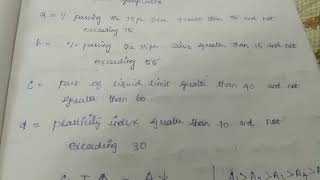 a = % passing the 75μ sieve greater than 35 and not
exceeding 75
b = % passing the 75μ sieve greater than 15 and not
exceeding 55
c = part of liquid limit greater than 40 and not
greater than 60
d = plasticity index greater than 10 and not
exceeding 30